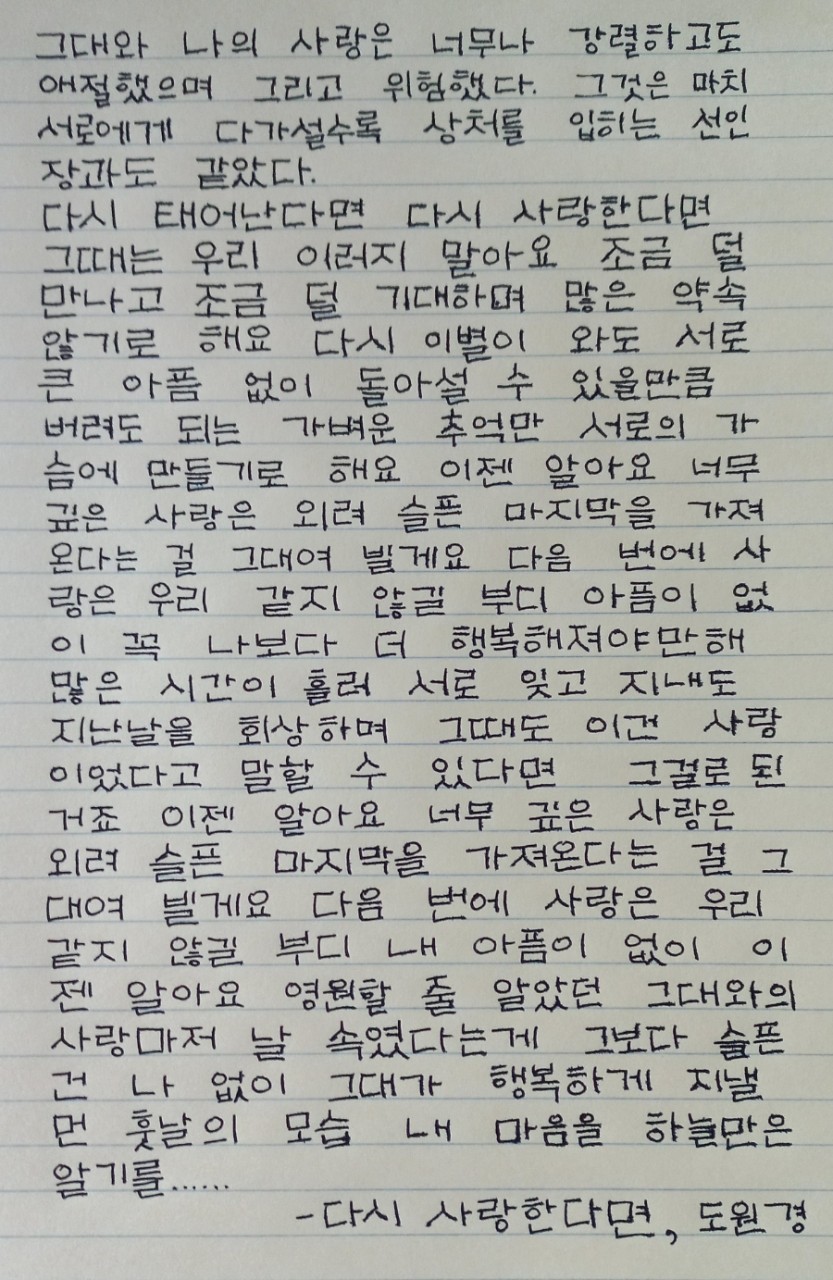 그대와 나의 사랑은 너무나 강렬하고도
애절했으며 그리고 위험했다. 그것은 마치
서로에게 다가설수록 상처를 입히는 선인
장과도 같았다.
다시 태어난다면 다시 사랑한다면
그때는 우리 이러지 말아요 조금 덜
만나고 조금 덜 기대하며 많은 약속
않기로 해요 다시 이별이 와도 서로
큰 아픔 없이 돌아설 수 있을만큼
버려도 되는 가벼운 추억만 서로의 가
슴에 만들기로 해요 이젠 알아요 너무
깊은 사랑은 외려 슬픈 마지막을 가져
온다는 걸 그대여 빌게요 다음 번에 사
랑은 우리 같지 않길 부디 아픔이 없
이 꼭 나보다 더 행복해져야만해
많은 시간이 흘러 서로 잊고 지내도
지난날을 회상하며 그때도 이건 사랑
이었다고 말할 수 있다면 그걸로 된
거죠 이젠 알아요 너무 깊은 사랑은
외려 슬픈 마지막을 가져온다는 걸 그
대여 빌게요 다음 번에 사랑은 우리
같지 않길 부디 내 아픔이 없이 이
젠 알아요 영원할 줄 알았던 그대와의
사랑마저 날 속였다는게 그보다 슬픈
건 나 없이 그대가 행복하게 지낼
먼 훗날의 모습 내 마음을 하늘만은
알기를......
-다시 사랑한다면, 도원경